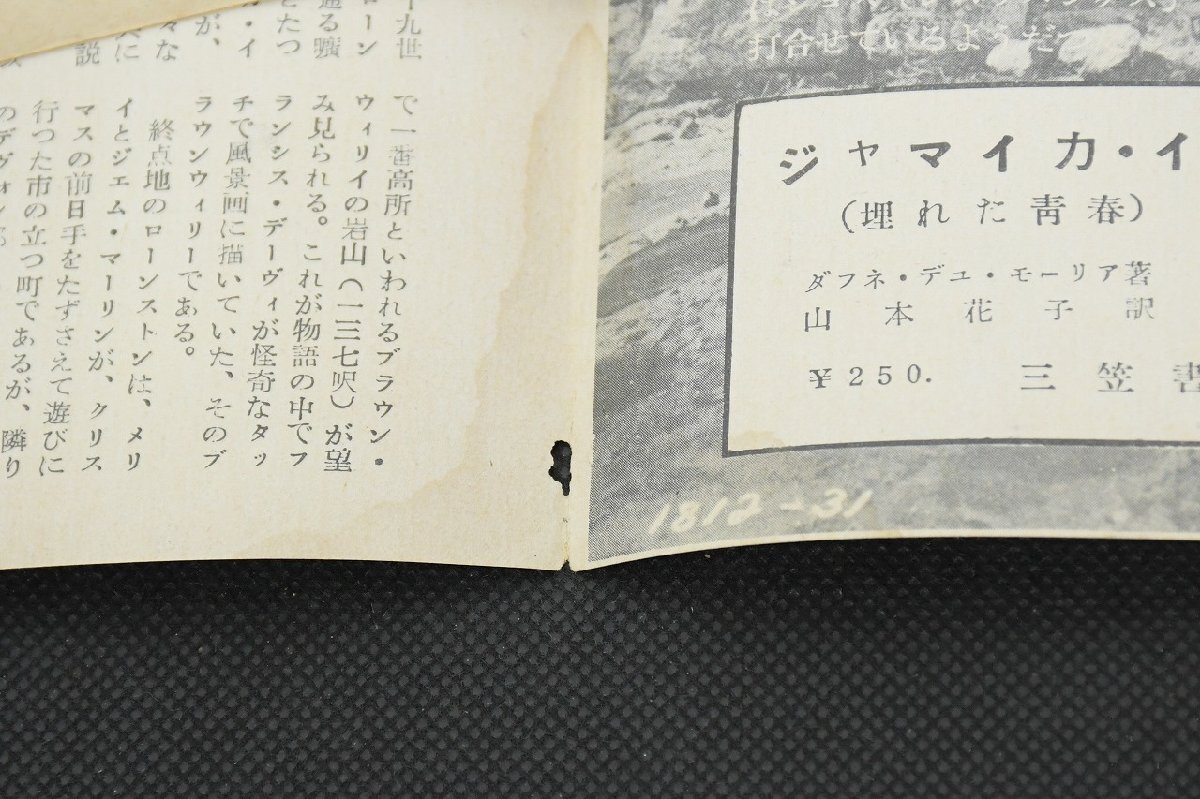 打合せているようだつ
ジャマイカ・イ
(埋れた青春)
ダフネ・デュ・モーリア著
山本花子訳
¥250. 三笠書
1812-31
十九世
ローン
とたつ
カ・イ
が、
々な
に
説
で一番高所といわれるブラウン・
ウィリイの岩山(一三七呎)が望
み見られる。これが物語の中でフ
ランシス・デーヴィが怪奇なタッ
チで風景画に描いていた、そのブ
ラウンウィリーである。
終点地のローンストンは、メリ
イとジェム・マーリンが、クリス
マスの前日手をたずさえて遊びに
行つた市の立つ町であるが、隣り
のデヴォン